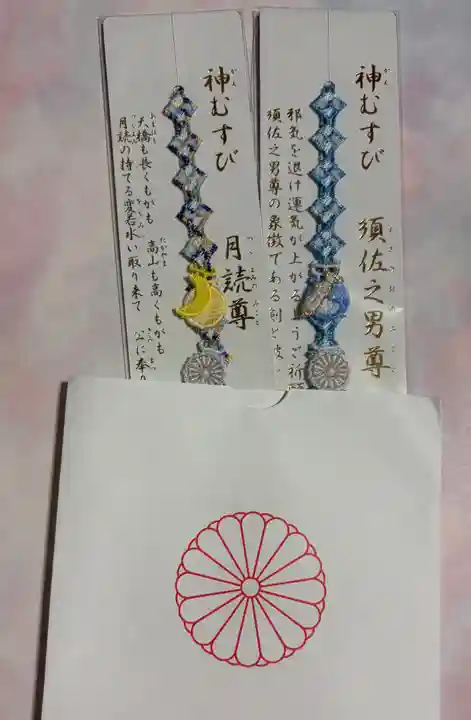 神むすび
月読尊
天橋も長くもがも 高山も高くもがも
月読の持てる変若水い取り来て 公に奉り
神むすび
須佐之男尊
邪気を退け運気が上がるようご祈願
須佐之男尊の象徴である剣と